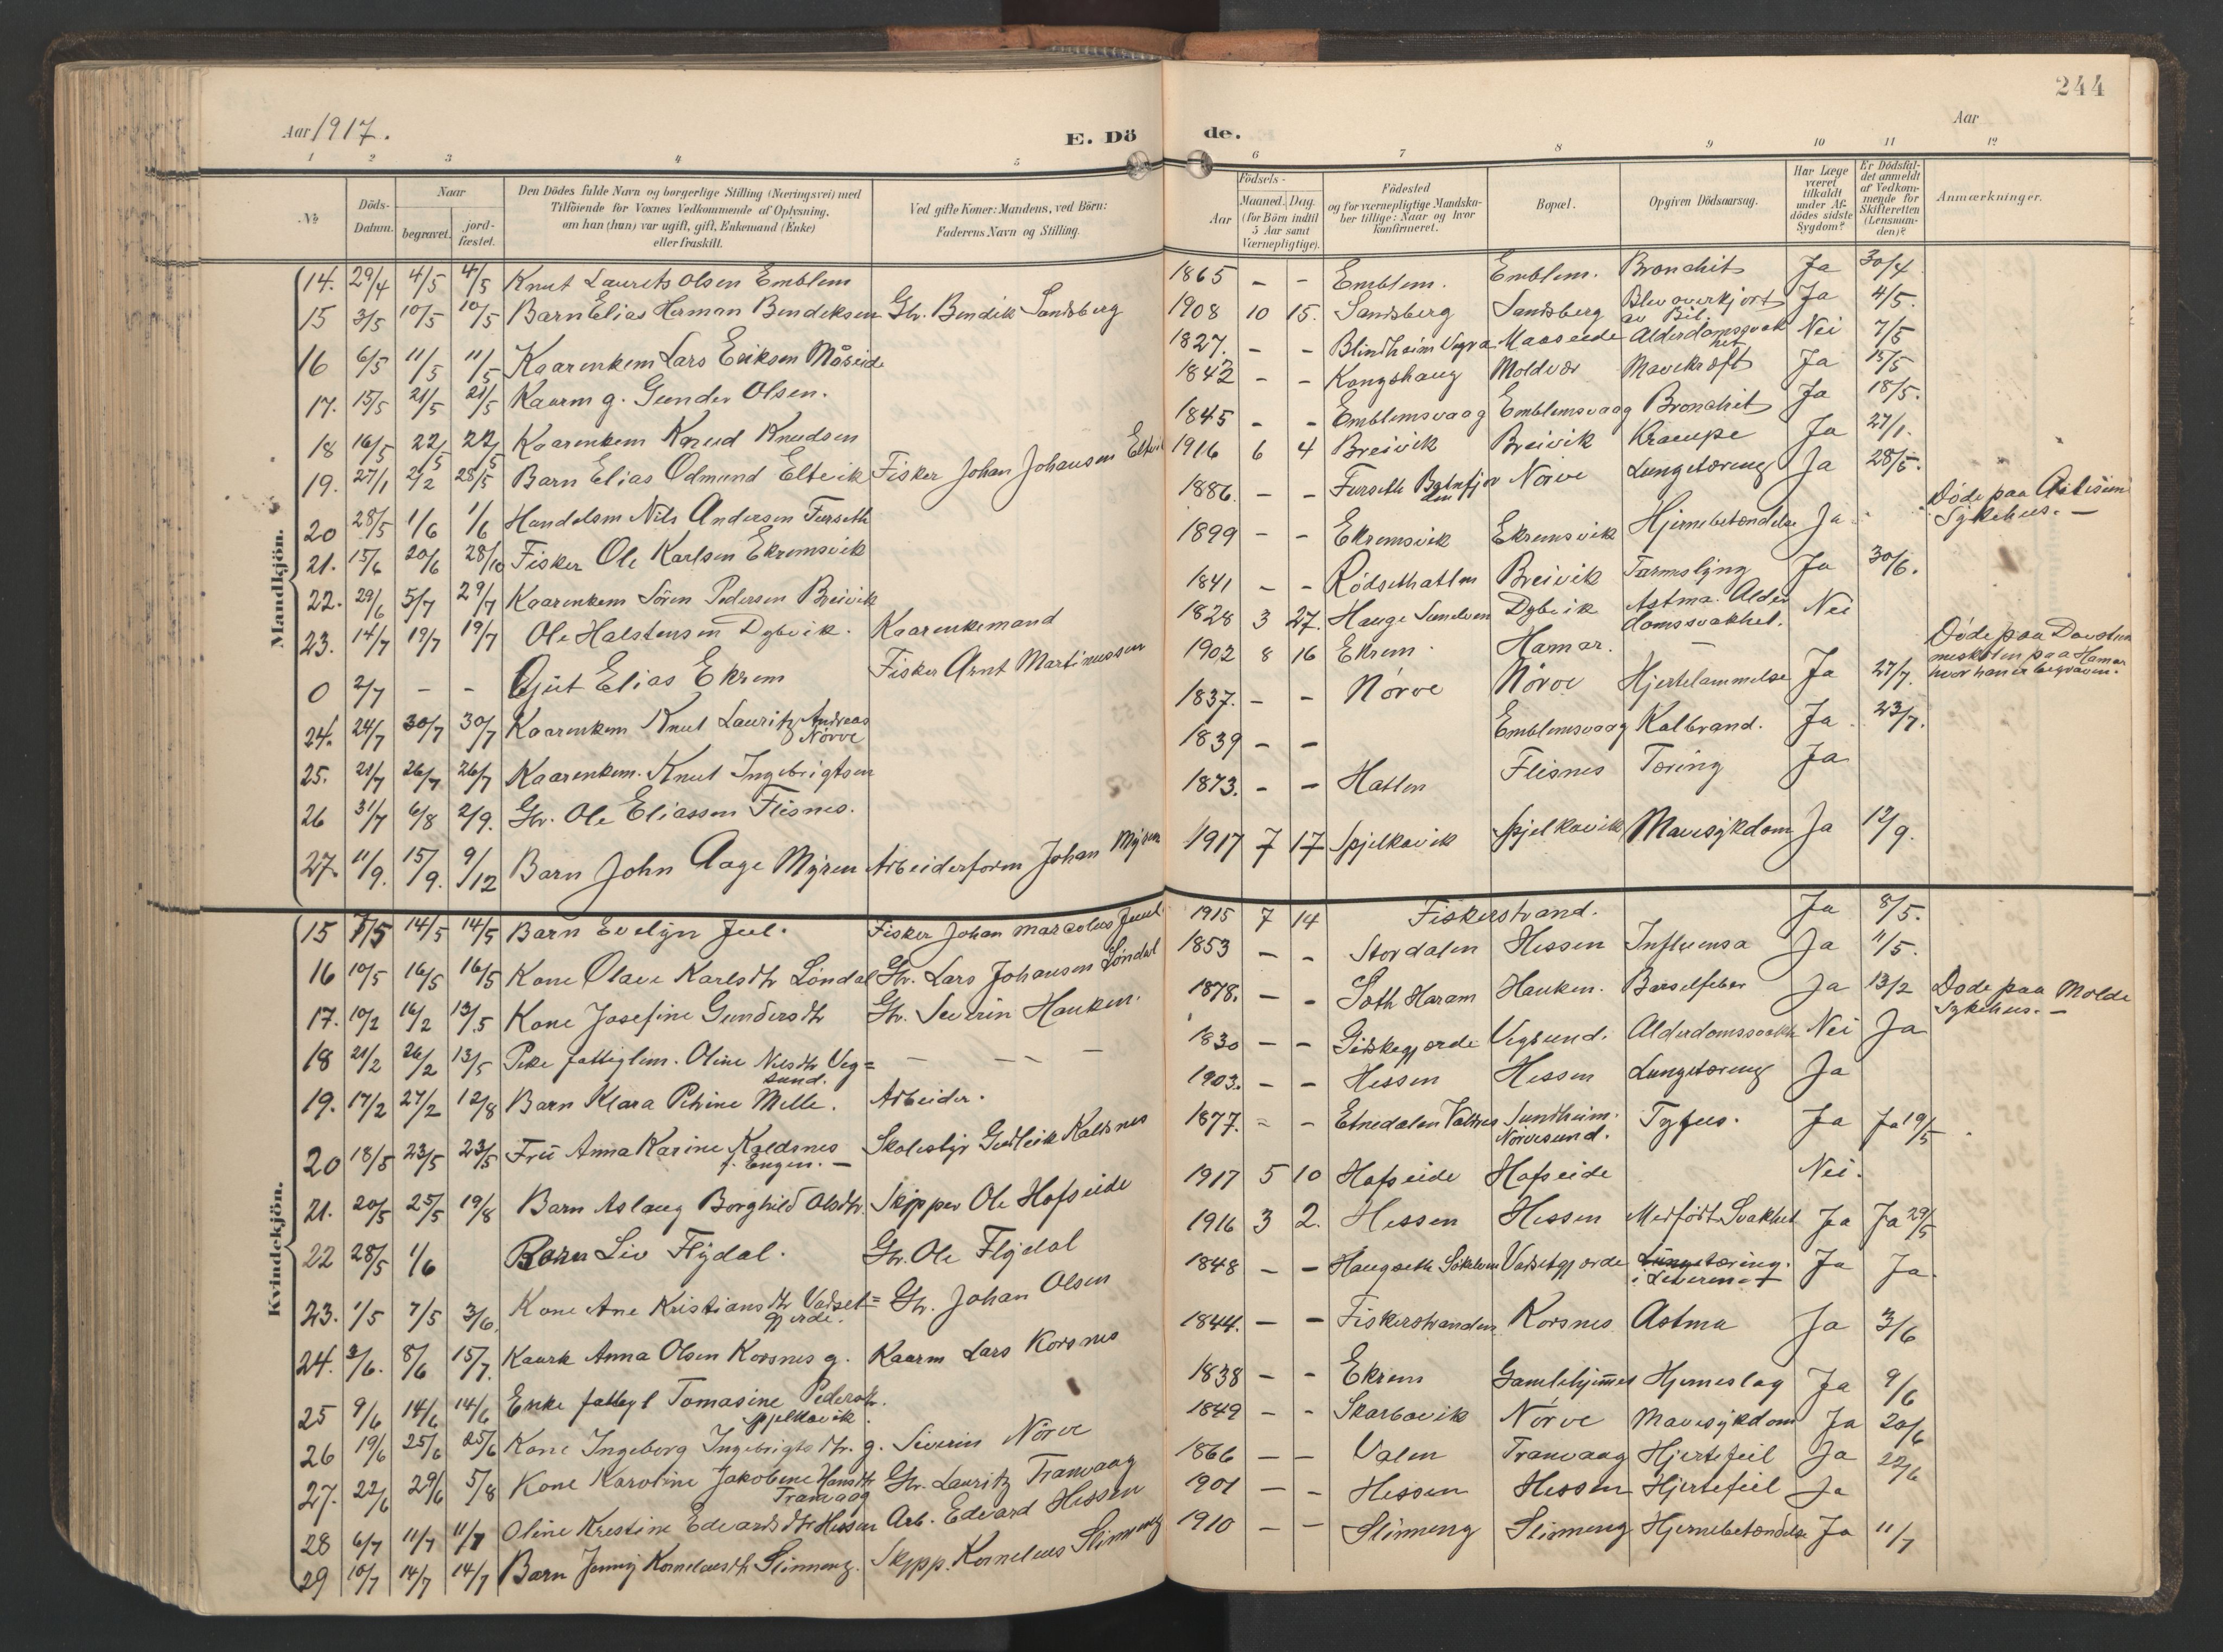 244
Aar 1917.
E. Dö de.
Aar
1 2 3 4 5 6 7 8 9 10 11 12
No
Döds-Datum.
Naar
begravet.
jord-fæstet.
Den Dödes fulde Navn og borgerlige Stilling (Næringsvei) med
Tilföiende for Voxnes Vedkommende af Oplysning,
om han (hun) var ugift, gift, Enkemand (Enke)
eller fraskilt.
Ved gifte Koner: Mandens, ved Börn:
Faderens Navn og Stilling.
Födsels-
Aar
Maaned. Dag.
(for Börn indtil
5 Aar samt
Værnepligtige).
Födested
og for værnepligtige Mandska-
ber tillige: Naar og hvor
konfirmeret.
Bopæl.
Opgiven Dödsaarsag.
Har Læge
været
tilkaldt
under Af-
dödes sidste
Sygdom?
Er Dödsfal-
det anmeldt
af Vedkom-
mende for
Skifteretten
(Lensman-
den)?
Anmærkninger.
Mandkjön.
14. 29/4 4/5 4/5 Knut Laurits Olsen Emblem 1865 - - Emblem. Emblem. Bronchit Ja 30/4
15 3/5 10/5 10/5 Barn Elias Herman Bendiksen Gbr. Bendik Sandsberg 1908 10 15. Sandsberg Sandsberg Blev overkjört av Bil. Ja 4/5.
16 6/5 11/5 11/5 Kaarenkem Lars Eriksen Måseide 1827. - - Blindheim Vigra Maaseide Alderdomssvakhet Nei 7/5
17. 15/5 21/5 21/5 Kaarm g. Gunder Olsen. 1842 - - Kongshaug Moldvær Mavekræft Ja 15/5
18 16/5 22/5 22/5 Kaarenkem Knud Knudsen 1845 - - Emblemsvaag Emblemsvaag Bronchit Ja 18/5.
19. 27/1 2/2 28/5 Barn Elias Odmund Eltevik Fisker Johan Johansen Eltevik 1916 6 4 Breivik Breivik Krampe Ja 27/1.
20 28/5 1/6 1/6 Handelsm Nils Andersen Furseth 1886. - - Furseth Batnfjorden Nörve Lungetæring Ja 28/5.
21. 15/6 20/6 28/10 Fisker Ole Karlsen Ekremsvik 1899 - - Ekremsvik Ekremsvik Hjernebetændelse Ja. Döde paa Sykehus. -
22. 29/6 5/7 29/7 Kaarenkem Sören Pedersen Breivik 1841 - - Rödsethatlen Breivik Tarmslyng Ja 30/6.
23. 14/7 19/7 19/7 Ole Halstensen Dybvik. Kaarenkemand 1828 3 27. Hauge Sunelven Dybvik Astma. Alderdomssvakhet. Nei
0 2/7 - - Gjut Elias Ekrem Fisker Arnt Martinussen 1902 8 16 Ekrem. Hamar. - Döde paa Davstummeskolen paa Hamar hvor han er begraven.
24. 24/7 30/7 30/7 Kaarenkem Knut Lauritz Andreas Nörve 1837. - - Nörve Nörve Hjertelammelse Ja 27/7.
25. 21/7 26/7 26/7 Kaarenkem. Knut Ingebrigtsen 1839 - - Emblemsvaag Kalbrand. Ja. 23/7.
26 31/7 6/8 2/9. Gbr. Ole Eliassen Flisnes. 1873. - - Hatlen Flisnes Tæring Ja
27. 11/9. 15/9. 9/12 Barn John Aage Myren Arbeiderform Johan Myren 1917 7 17 Spjelkavik Spjelkavik Mavesykdom Ja 12/9.
Kvindekjön.
15 7/5 14/5 14/5 Barn Evelyn Juul. Fisker Johan Marcelius Juul. 1915 7 14 Fiskerstrand. Ja 8/5.
16 10/5 16/5 16/5 Kone Olave Karlsdtr Löndal Gbr. Lars Johansen Löndal 1853 - - Stordalen Hessen Influensa Ja 11/5.
17. 10/2 16/2 13/5 Kone Josefine Gundersdtr Gbr. Severin Hauken. 1878. - - Söth Haram Hauken. Barselfeber Ja 13/2 Döde paa Molde Sykehus. -
18 21/2 26/2 13/5 Pike fattiglem. Oline Nilsdtr Veg=sund. - - - 1830 - - Giskegjerde Vegsund. Alderdomssvakh Nei Ja
19. 17/2 27/2 12/8 Barn Klara Petrine Melle. Arbeider. 1903. - - Hessen Hessen Lungetæring Ja
20 18/5 23/5 23/5 Frü Anna Karine Kaldsnes f. Engen. - Skolestyr Gudleik Kaldsnes 1877. - - Etnedalen Valdres Sundheim. Nörvesund. Tyfus. Ja Ja 19/5
21. 20/5 25/5 19/8 Barn Aslaug Borghild Olsdtr. Skipper Ole Hofseide 1917 5 10 Hofseide Hofseide Nei.
22 28/5 1/6 Barn Liv Flydal. Gbr. Ole Flydal 1916 3 2. Hessen Hessen Medfödt Svakhet Ja Ja 29/5
23. 1/5 7/5 3/6. Kone Ane Kristiansdtr Vadset=gjerde. Gbr. Johan Olsen 1848 - - Haugseth Vadsetgjerde Lungetæring. i Leveren Ja Ja.
24. 3/6. 8/6 15/7. Kaark Anna Olsen Korsnes g. Kaarm Lars Korsnes 1844. - - Fiskerstranden Korsnes Astma Ja 3/6
25 9/6 14/6 14/6 Enke fattigl Tomasine Pedersdtr. Spjelkavik. 1838 - - Ekrem Gamlehjemmet Hjerneslag Ja 9/6
26 19/6 25/6 25/6 Kone Ingeborg Ingebrigtsdtr. g. Severin Nörve 1849 - - Skarbövik Nörve Mavesykdom Ja 20/6
27. 22/6 29/6 5/8 Kone Karoline Jakobine Hansdtr Tranvaag Gbr. Lauritz Tranvaag 1866 - - Valen Tranvaag Hjertefeil Ja 22/6
28 6/7 11/7 11/7 Oline Krestine Edvardsdtr Hessen Arb. Edvard Hessen 1901 - - Hessen Hessen Hjertefeil Ja
29 10/7 14/7 14/7 Barn Jenny Korneliusdtr Slinneng. Skipp. Kornelius Slinneng 1910 - - Slinneng Slinneng Hjernebetændelse Ja 11/7